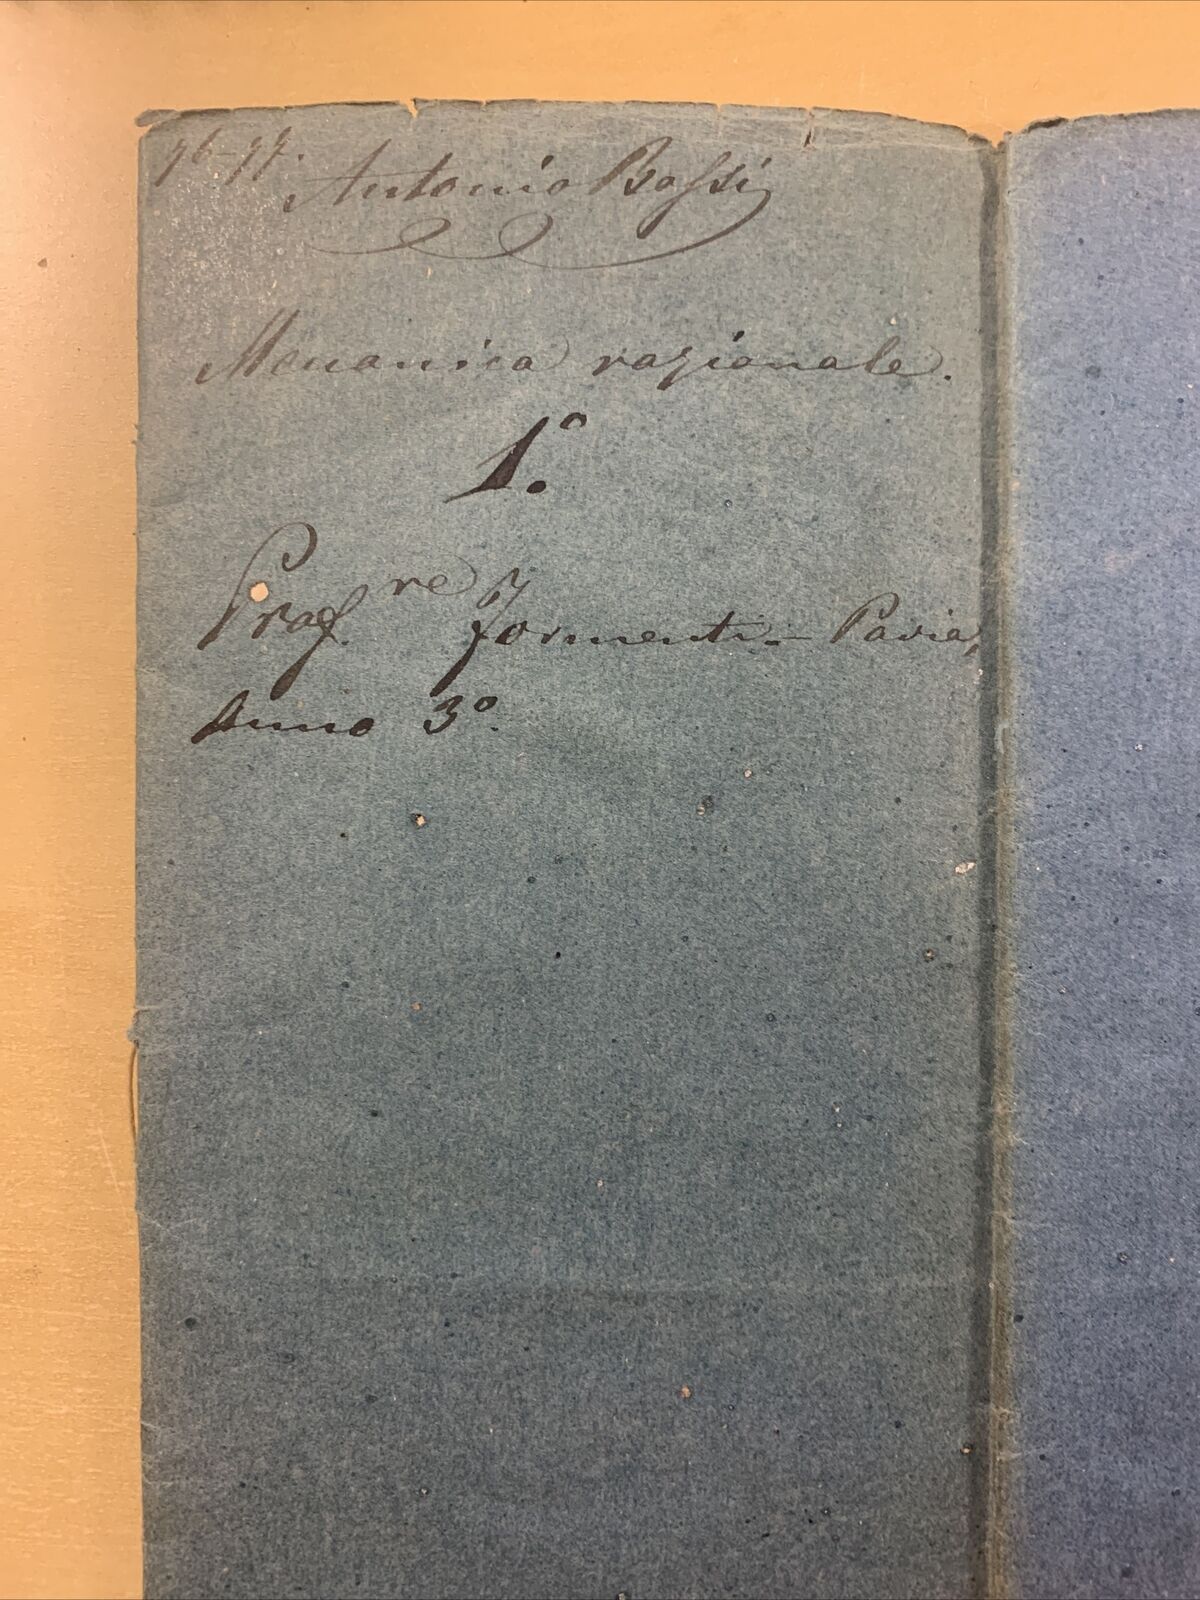 76-77. Antonio Bossi
Meccanica razionale.
1.º
Prof.re Formenti - Pavia,
Anno 3º.